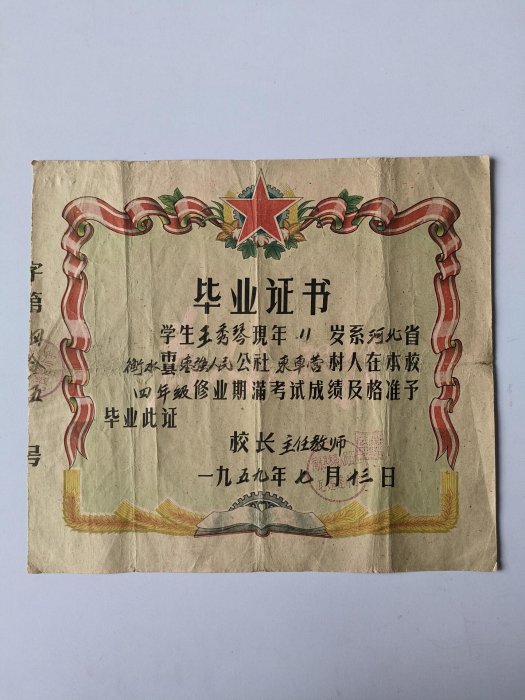 毕业证书
学生王秀琴現年11岁系河北省
衡水市县枣强人民公社东車营村人在本校
四年级修业期滿考试成绩及格准予
毕业此证
校长主任教师
一九五九年七月十三日
字第四拾五号